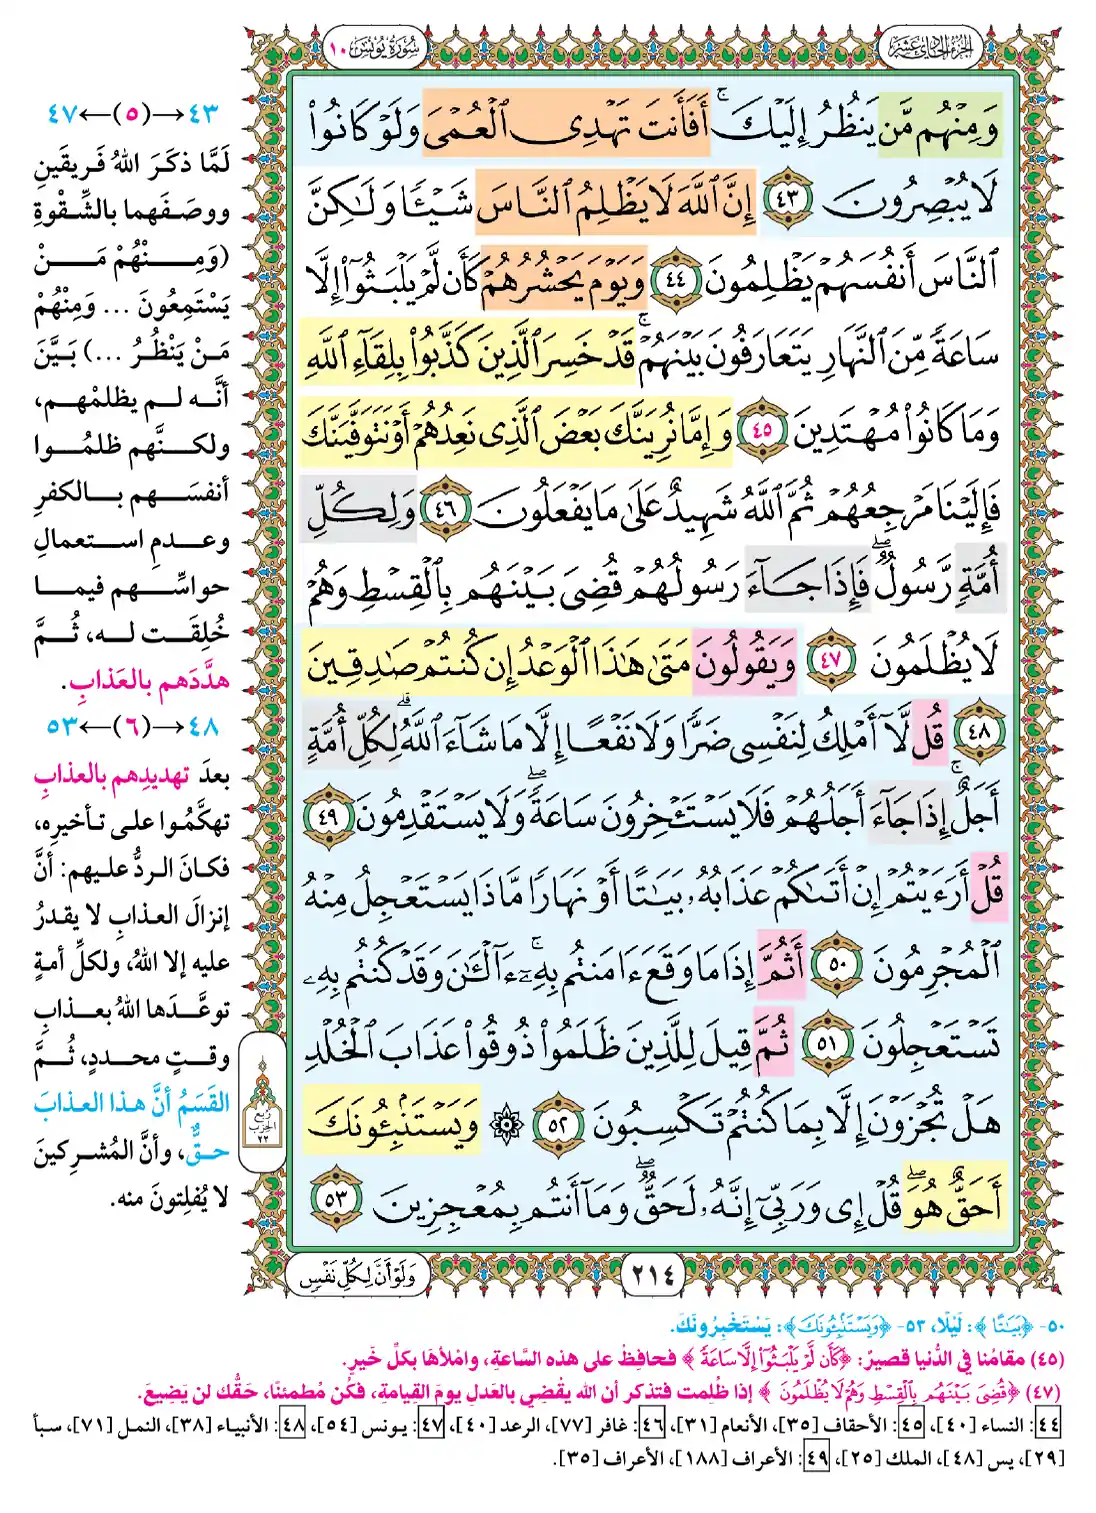 الجزء الحادي عشر
سورة يونس ١٠
وَمِنْهُم مَّن يَنظُرُ إِلَيْكَ ۚ أَفَأَنتَ تَهْدِى ٱلْعُمْىَ وَلَوْ كَانُوا۟
لَا يُبْصِرُونَ ٤٣ إِنَّ ٱللَّهَ لَا يَظْلِمُ ٱلنَّاسَ شَيْـًٔا وَلَـٰكِنَّ
ٱلنَّاسَ أَنفُسَهُمْ يَظْلِمُونَ ٤٤ وَيَوْمَ يَحْشُرُهُمْ كَأَن لَّمْ يَلْبَثُوٓا۟ إِلَّا
سَاعَةً مِّنَ ٱلنَّهَارِ يَتَعَارَفُونَ بَيْنَهُمْ ۚ قَدْ خَسِرَ ٱلَّذِينَ كَذَّبُوا۟ بِلِقَآءِ ٱللَّهِ
وَمَا كَانُوا۟ مُهْتَدِينَ ٤٥ وَإِمَّا نُرِيَنَّكَ بَعْضَ ٱلَّذِى نَعِدُهُمْ أَوْ نَتَوَفَّيَنَّكَ
فَإِلَيْنَا مَرْجِعُهُمْ ثُمَّ ٱللَّهُ شَهِيدٌ عَلَىٰ مَا يَفْعَلُونَ ٤٦ وَلِكُلِّ
أُمَّةٍ رَّسُولٌ ۖ فَإِذَا جَآءَ رَسُولُهُمْ قُضِىَ بَيْنَهُم بِٱلْقِسْطِ وَهُمْ
لَا يُظْلَمُونَ ٤٧ وَيَقُولُونَ مَتَىٰ هَـٰذَا ٱلْوَعْدُ إِن كُنتُمْ صَـٰدِقِينَ
٤٨ قُل لَّآ أَمْلِكُ لِنَفْسِى ضَرًّا وَلَا نَفْعًا إِلَّا مَا شَآءَ ٱللَّهُ ۗ لِكُلِّ أُمَّةٍ
أَجَلٌ ۚ إِذَا جَآءَ أَجَلُهُمْ فَلَا يَسْتَـْٔخِرُونَ سَاعَةً ۖ وَلَا يَسْتَقْدِمُونَ ٤٩
قُلْ أَرَءَيْتُمْ إِنْ أَتَىٰكُمْ عَذَابُهُۥ بَيَـٰتًا أَوْ نَهَارًا مَّاذَا يَسْتَعْجِلُ مِنْهُ
ٱلْمُجْرِمُونَ ٥٠ أَثُمَّ إِذَا مَا وَقَعَ ءَامَنتُم بِهِۦٓ ۚ ءَآلْـَٔـٰنَ وَقَدْ كُنتُم بِهِۦ
تَسْتَعْجِلُونَ ٥١ ثُمَّ قِيلَ لِلَّذِينَ ظَلَمُوا۟ ذُوقُوا۟ عَذَابَ ٱلْخُلْدِ
هَلْ تُجْزَوْنَ إِلَّا بِمَا كُنتُمْ تَكْسِبُونَ ٥٢ ۞ وَيَسْتَنۢبِـُٔونَكَ
أَحَقٌّ هُوَ ۖ قُلْ إِى وَرَبِّىٓ إِنَّهُۥ لَحَقٌّ ۖ وَمَآ أَنتُم بِمُعْجِزِينَ ٥٣
٢١٤
وَلَوْ أَنَّ لِكُلِّ نَفْسٍ
ربع
الحزب
٢٢
٤٣→(٥)←٤٧
لَمَّا ذكَرَ اللهُ فريقَينِ
ووصَفَهما بالشِّقْوةِ
(وَمِنْهُمْ مَنْ
يَسْتَمِعُونَ ... وَمِنْهُمْ
مَنْ يَنْظُرُ ...) بَيَّنَ
أنَّه لم يظلمْهم،
ولكنَّهم ظلمُوا
أنفسَهم بالكفرِ
وعدمِ استعمالِ
حواسِّهم فيما
خُلِقَت له، ثُمَّ
هدَّدَهم بالعَذابِ.
٤٨→(٦)←٥٣
بعدَ تهديدِهم بالعذابِ
تهكَّمُوا على تأخيرِه،
فكانَ الردُّ عليهم: أنَّ
إنزالَ العذابِ لا يقدرُ
عليه إلا اللهُ، ولكلِّ أمةٍ
توعَّدَها اللهُ بعذابٍ
وقتٍ محددٍ، ثُمَّ
القَسَمُ أنَّ هذا العذابَ
حقٌّ، وأنَّ المُشركينَ
لا يُفلِتونَ منه.
٥٠- ﴿بَيَـٰتًا﴾: لَيْلًا، ٥٣- ﴿وَيَسْتَنۢبِـُٔونَكَ﴾: يَسْتَخْبِرُونَكَ.
(٤٥) مقامُنا في الدُّنيا قصيرٌ: ﴿كَأَن لَّمْ يَلْبَثُوٓا۟ إِلَّا سَاعَةً﴾ فحافِظْ على هذه السَّاعةِ، واملأها بكلِّ خَيرٍ.
(٤٧) ﴿قُضِىَ بَيْنَهُم بِٱلْقِسْطِ وَهُمْ لَا يُظْلَمُونَ﴾ إذا ظُلِمت فتذكر أن الله يقْضِي بالعدلِ يومَ القِيامةِ، فكُن مُطمئنًا، حَقُّك لن يَضِيعَ.
٤٤: النساء [٤٠]، ٤٥: الأحقاف [٣٥]، الأنعام [٣١]، ٤٦: غافر [٧٧]، الرعد [٤٠]، ٤٧: يونس [٥٤]، ٤٨: الأنبياء [٣٨]، النمل [٧١]، سبأ
[٢٩]، يس [٤٨]، الملك [٢٥]، ٤٩: الأعراف [١٨٨]، الأعراف [٣٥].